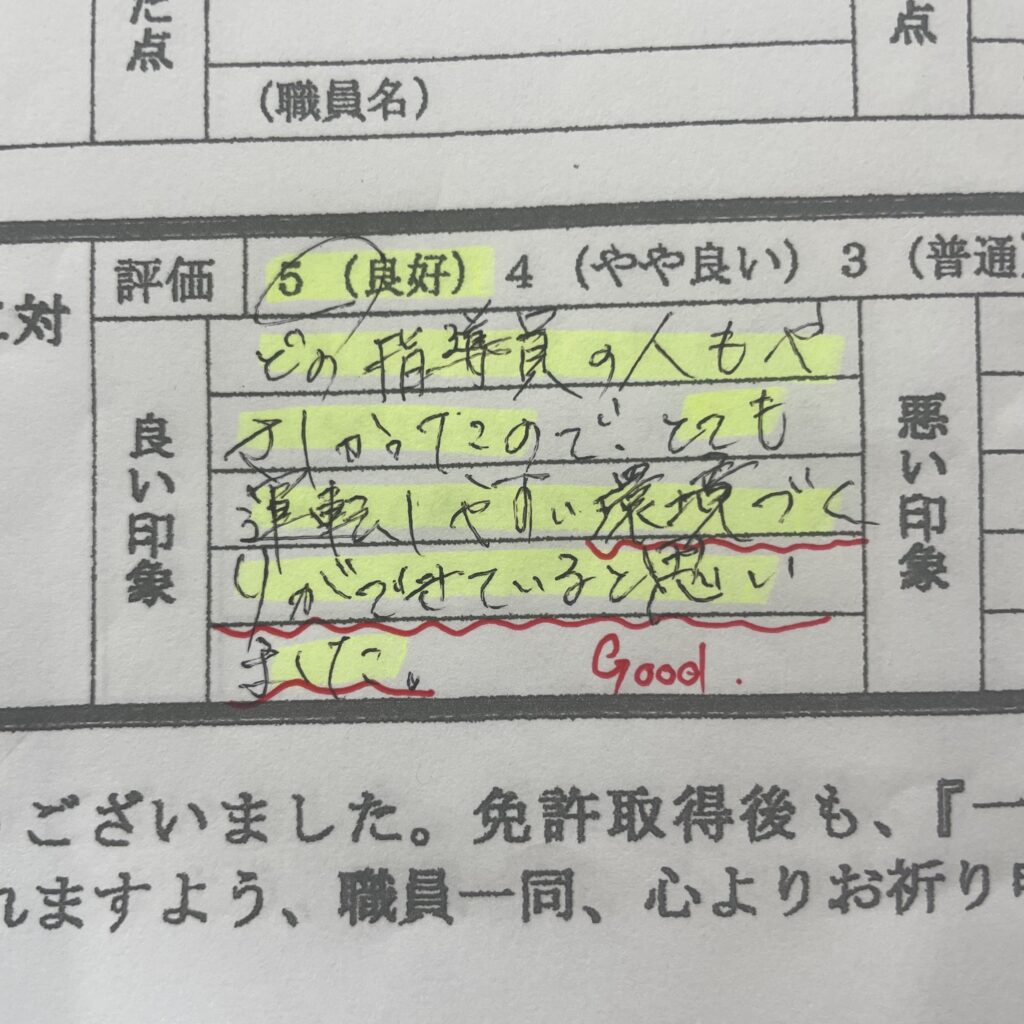 た点
点
(職員名)
に対
評価
5 (良好) 4 (やや良い) 3 (普通)
良い印象
どの指導員の人もや
さしかったので、とても
運転しやすい環境づく
りができせていると思い
ました。
Good.
悪い印象
ございました。免許取得後も、『一
れますよう、職員一同、心よりお祈り申